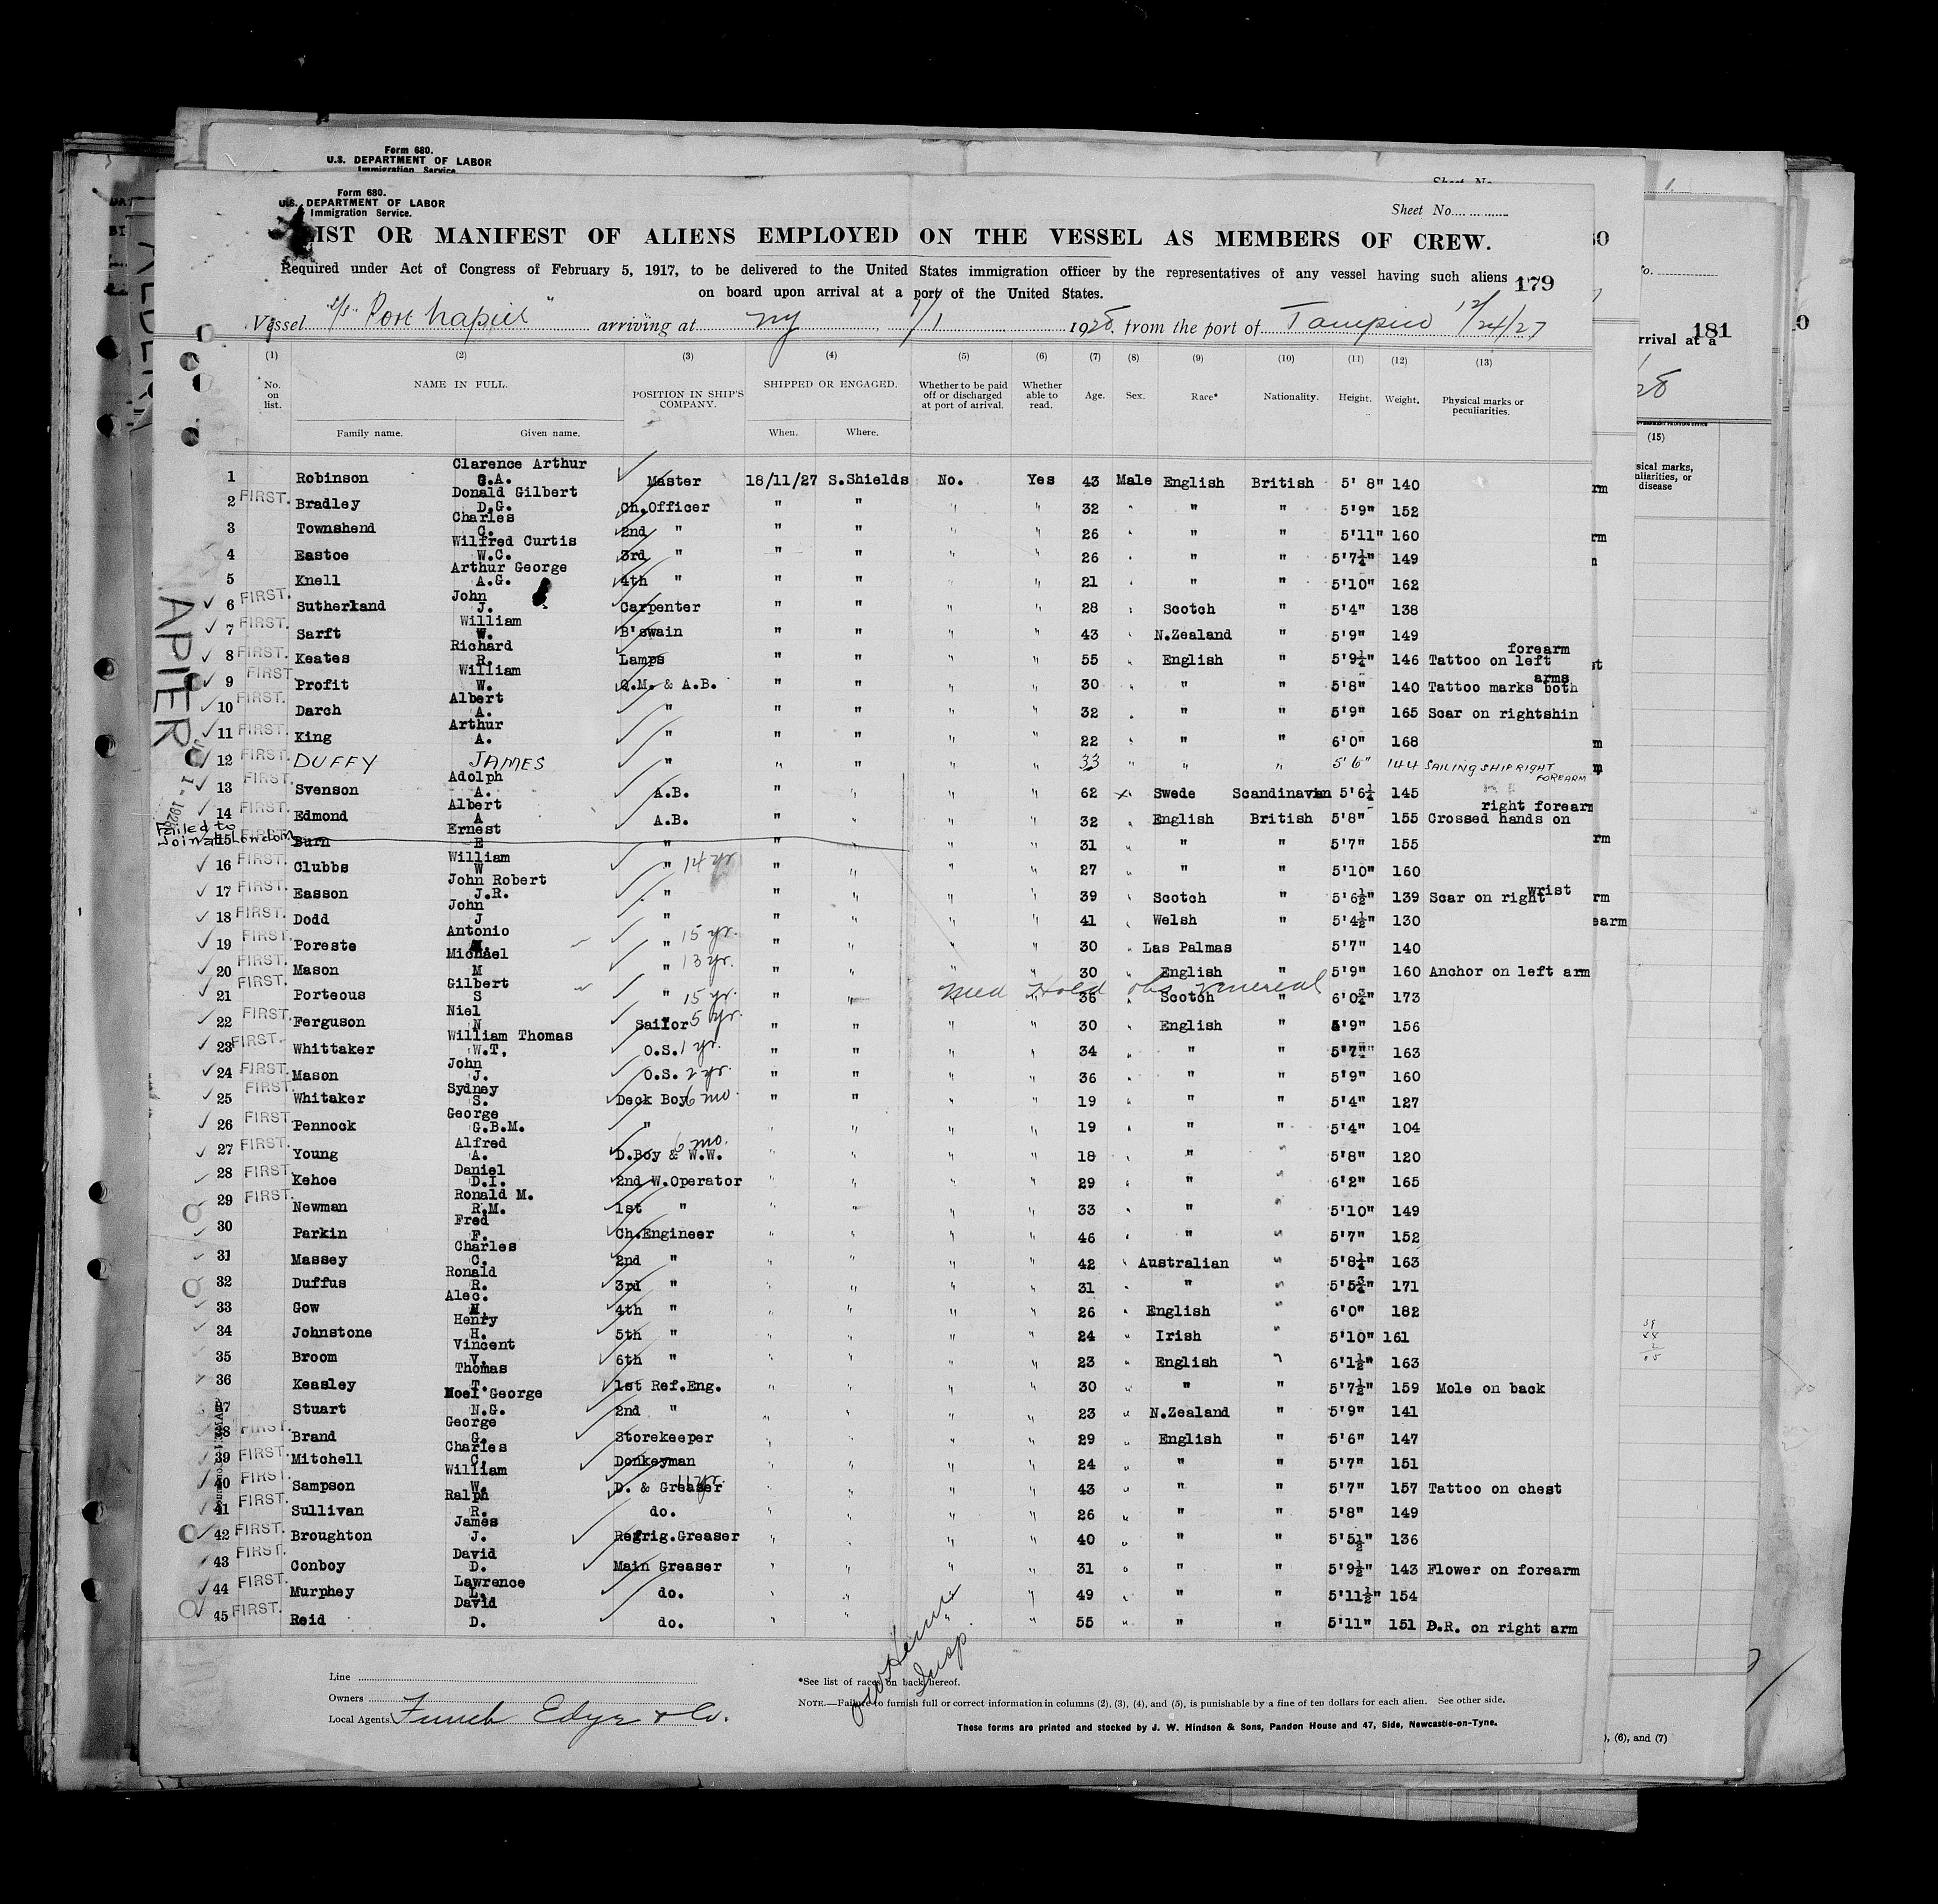 Form 680.
U.S. DEPARTMENT OF LABOR
Immigration Service.
Form 680.
U.S. DEPARTMENT OF LABOR
Immigration Service.
Sheet No.
LIST OR MANIFEST OF ALIENS EMPLOYED ON THE VESSEL AS MEMBERS OF CREW.
Required under Act of Congress of February 5, 1917, to be delivered to the United States immigration officer by the representatives of any vessel having such aliens
on board upon arrival at a port of the United States.
179
Vessel s/s "Port Napier" arriving at NY 1/1 1928, from the port of Tampico 12/24/27
(1) (2) (3) (4) (5) (6) (7) (8) (9) (10) (11) (12) (13)
No. on list. NAME IN FULL. POSITION IN SHIP'S COMPANY. SHIPPED OR ENGAGED. Whether to be paid off or discharged at port of arrival. Whether able to read. Age. Sex. Race* Nationality. Height. Weight. Physical marks or peculiarities.
Family name. Given name. When. Where.
1 Robinson Clarence Arthur C.A. Master 18/11/27 S.Shields No. Yes 43 Male English British 5' 8" 140
2 FIRST. Bradley Donald Gilbert D.G. Ch.Officer " " " " 32 " " " 5'9" 152
3 Townshend Charles C. 2nd " " " " " 26 " " " 5'11" 160
4 Eastoe Wilfred Curtis W.C. 3rd " " " " " 26 " " " 5'7¼" 149
5 Knell Arthur George A.G. 4th " " " " " 21 " " " 5'10" 162
6 FIRST. Sutherland John J. Carpenter " " " " 28 " Scotch " 5'4" 138
7 FIRST. Sarft William W. B'swain " " " " 43 " N.Zealand " 5'9" 149
8 FIRST. Keates Richard R. Lamps " " " " 55 " English " 5'9¼" 146 Tattoo on left forearm
9 FIRST Profit William W. Q.M. & A.B. " " " " 30 " " " 5'8" 140 Tattoo marks both arms
10 FIRST. Darch Albert A. " " " " " 32 " " " 5'9" 165 Scar on rightshin
11 FIRST. King Arthur A. " " " " " 22 " " " 6'0" 168
12 FIRST. DUFFY JAMES " " " " " 33 " " " 5'6" 144 SAILING SHIP RIGHT FOREARM
13 FIRST. Svenson Adolph A. A.B. " " " " 62 Swede Scandinavian 5'6¼ 145
14 FIRST. Edmond Albert A A.B. " " " " 32 " English British 5'8" 155 Crossed hands on right forearm
Failed to Join at London
15 FIRST. Burn Ernest E " " " " " 31 " " " 5'7" 155
16 FIRST. Clubbs William W " 14 yr " " " " 27 " " " 5'10" 160
17 FIRST. Easson John Robert J.R. " " " " " 39 " Scotch " 5'6½" 139 Scar on right wrist
18 FIRST. Dodd John J " " " " " 41 " Welsh " 5'4½" 130
19 FIRST. Poreste Antonio " 15 yr. " " " " 30 " Las Palmas 5'7" 140
20 FIRST. Mason Michael M " 13 yr. " " " " 30 " English " 5'9" 160 Anchor on left arm
21 FIRST. Porteous Gilbert S " 15 yr. " " Med Hold obs venereal 36 " Scotch " 6'0¾" 173
22 FIRST. Ferguson Niel N Sailor 5 yr. " " " " 30 " English " 5'9" 156
23 FIRST. Whittaker William Thomas W.T. O.S. 1 yr. " " " " 34 " " " 5'7" 163
24 FIRST. Mason John J. O.S. 2 yr. " " " " 36 " " " 5'9" 160
25 FIRST. Whitaker Sydney S. Deck Boy 6 mo. " " " " 19 " " " 5'4" 127
26 FIRST. Pennock George G.B.M. " " " " " 19 " " " 5'4" 104
27 FIRST. Young Alfred A. D.Boy & W.W. 6 mo. " " " " 18 " " " 5'8" 120
28 FIRST. Kehoe Daniel D.I. 2nd W.Operator " " " " 29 " " " 6'2" 165
29 FIRST. Newman Ronald M. R.M. 1st " " " " " 33 " " " 5'10" 149
30 Parkin Fred F. Ch.Engineer " " " " 46 " " " 5'7" 152
31 Massey Charles C. 2nd " " " " " 42 " Australian " 5'8¼" 163
32 Duffus Ronald R. 3rd " " " " " 31 " " " 5'5¾" 171
33 Gow Alec. 4th " " " " " 26 " English " 6'0" 182
34 Johnstone Henry H. 5th " " " " " 24 " Irish " 5'10" 161
35 Broom Vincent V. 6th " " " " " 23 " English " 6'1½" 163
36 Keasley Thomas T. 1st Ref.Eng. " " " " 30 " " " 5'7½" 159 Mole on back
37 Stuart Noel George N.G. 2nd " " " " " 23 " N.Zealand " 5'9" 141
38 FIRST. Brand George G. Storekeeper " " " " 29 " English " 5'6" 147
39 FIRST. Mitchell Charles C. Donkeyman " " " " 24 " " " 5'7" 151
40 FIRST. Sampson William W. D. & Greaser 11 yr. " " " " 43 " " " 5'7" 157 Tattoo on chest
41 FIRST. Sullivan Ralph R. do. " " " " 26 " " " 5'8" 149
42 FIRST. Broughton James J. Refrig.Greaser " " " " 40 " " " 5'5½" 136
43 FIRST. Conboy David D. Main Greaser " " " " 31 " " " 5'9½" 143 Flower on forearm
44 FIRST. Murphey Lawrence L. do. " " " " 49 " " " 5'11½" 154
45 FIRST. Reid David D. do. " " " " 55 " " " 5'11" 151 D.R. on right arm
Line
Owners
Local Agents Funch Edye & Co.
Insp.
*See list of races on back hereof.
NOTE.—Failure to furnish full or correct information in columns (2), (3), (4), and (5), is punishable by a fine of ten dollars for each alien. See other side.
These forms are printed and stocked by J. W. Hindson & Sons, Pandon House and 47, Side, Newcastle-on-Tyne.
APIER
181
rrival at a
(15)
sical marks,
uliarities, or
disease
), (6), and (7)